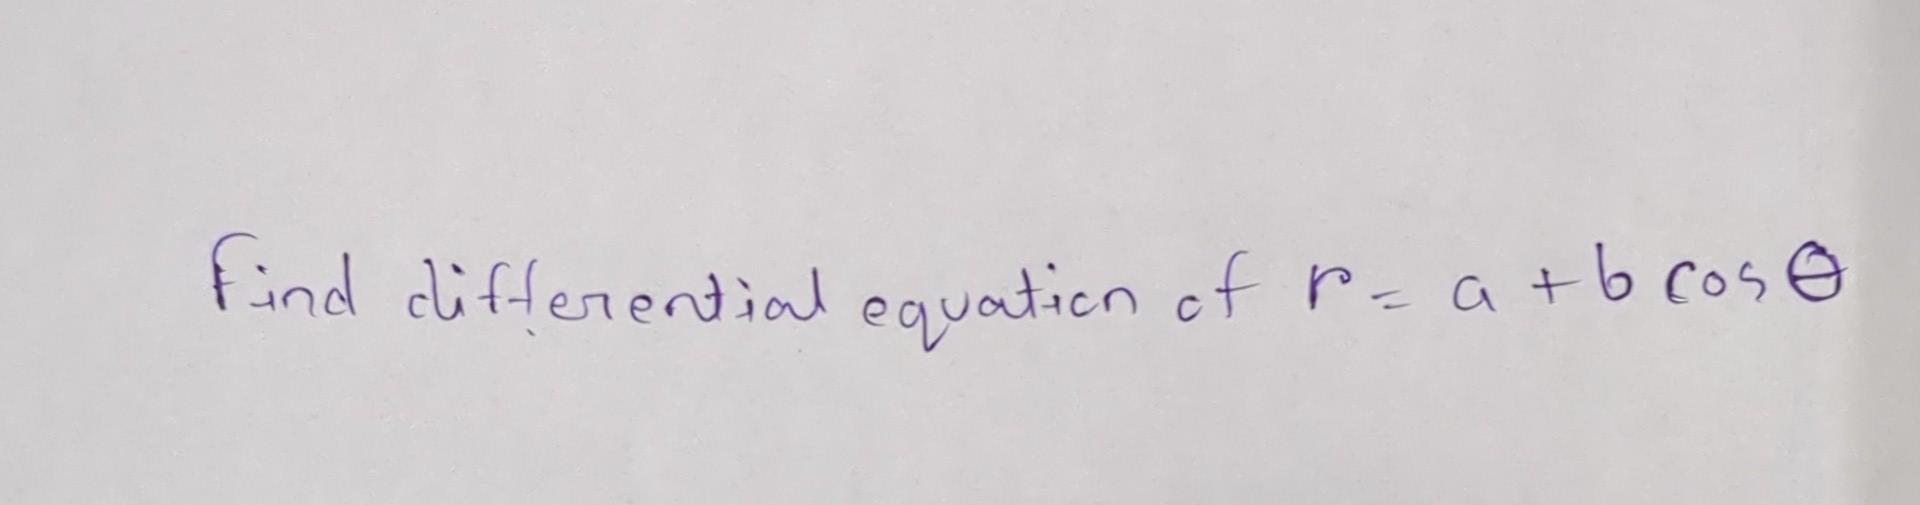 Find differential equation of r = a + b cos θ